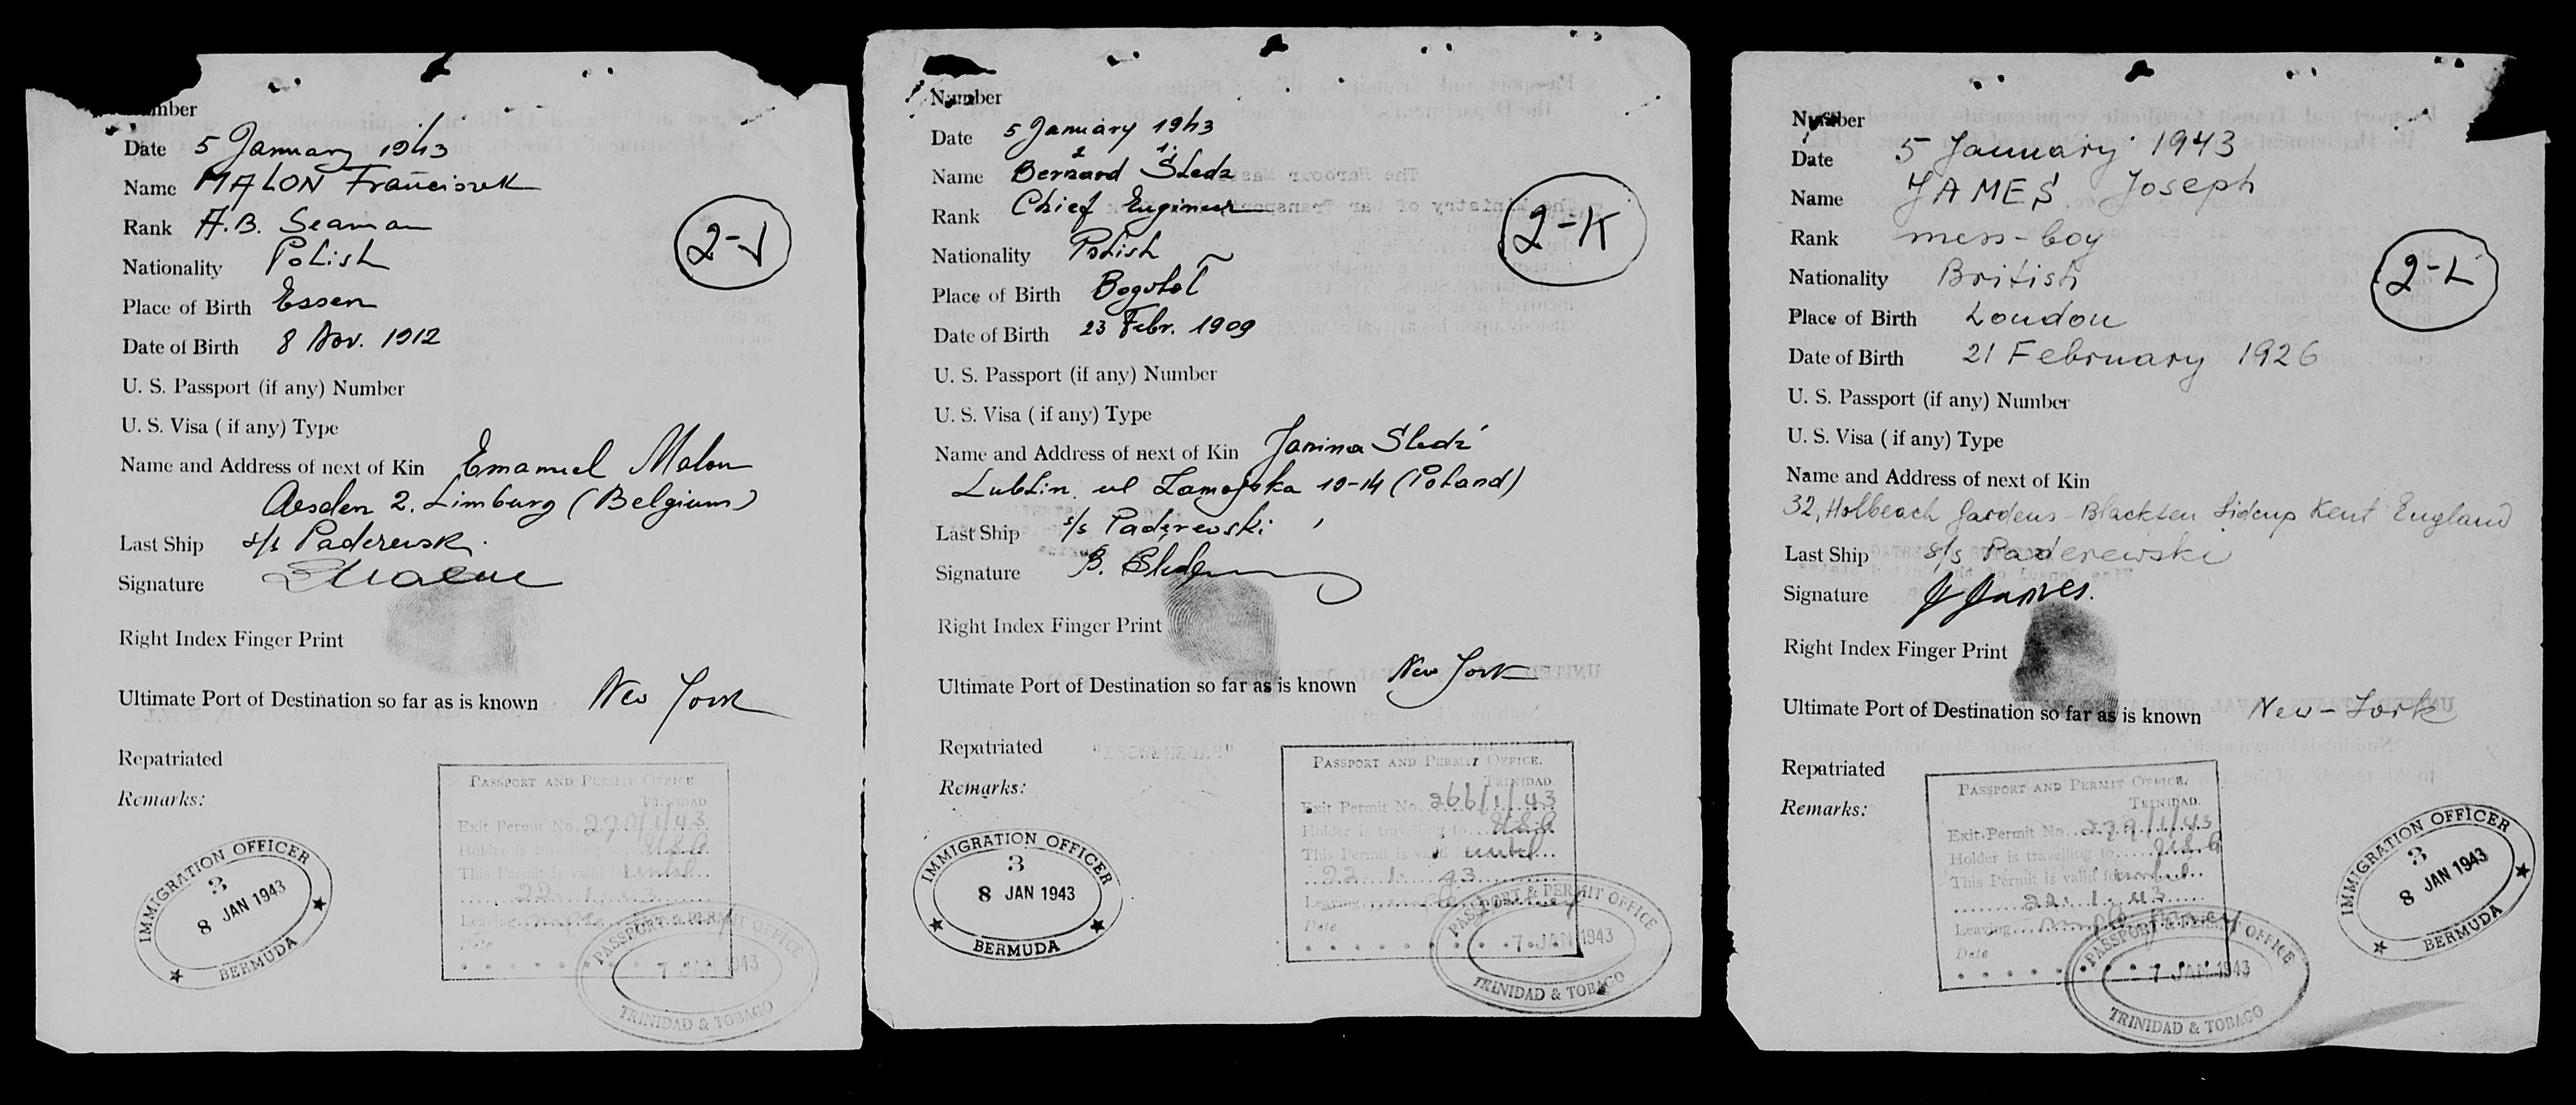 Number
Date 5 January 1943
Name MALON Franciszek
Rank A.B. Seaman
Nationality Polish
Place of Birth Essen
Date of Birth 8 Nov. 1912
U. S. Passport (if any) Number
U. S. Visa ( if any) Type
Name and Address of next of Kin Emanuel Malon
Aesden 2. Limburg (Belgium)
Last Ship s/s Paderewski.
Signature
Right Index Finger Print
Ultimate Port of Destination so far as is known New York
Repatriated
Remarks:
2-J
PASSPORT AND PERMIT OFFICE.
TRINIDAD
Exit Permit No. 270/1/43
Holder is travelling to USA
This Permit is valid until
22. 1. 43
Leaving
Date
PASSPORT & PERMIT OFFICE
7 JAN 1943
TRINIDAD & TOBAGO
IMMIGRATION OFFICER
3
8 JAN 1943
BERMUDA
Number
Date 5 January 1943
Name Bernard Śledź
2 1.
Rank Chief Engineer
Nationality Polish
Place of Birth
Date of Birth 23 Febr. 1909
U. S. Passport (if any) Number
U. S. Visa ( if any) Type
Name and Address of next of Kin Janina Śledź
Lublin ul Zamojska 10-14 (Poland)
Last Ship s/s Paderewski
Signature B. Śledź
Right Index Finger Print
Ultimate Port of Destination so far as is known New York
Repatriated
Remarks:
2-K
PASSPORT AND PERMIT OFFICE.
TRINIDAD.
Exit Permit No. 266/1/43
Holder is travelling to USA
This Permit is valid until
22. 1. 43
Leaving
Date
PASSPORT & PERMIT OFFICE
7 JAN 1943
TRINIDAD & TOBAGO
IMMIGRATION OFFICER
3
8 JAN 1943
BERMUDA
Number
Date 5 January 1943
Name JAMES Joseph
Rank mess-boy
Nationality British
Place of Birth London
Date of Birth 21 February 1926
U. S. Passport (if any) Number
U. S. Visa ( if any) Type
Name and Address of next of Kin
32, Holbeach Gardens - Blackfen Sidcup Kent England
Last Ship s/s Paderewski
Signature J James.
Right Index Finger Print
Ultimate Port of Destination so far as is known New-York
Repatriated
Remarks:
2-L
PASSPORT AND PERMIT OFFICE.
TRINIDAD.
Exit Permit No. 279/1/43
Holder is travelling to USA
This Permit is valid for until
22. 1. 43
Leaving
Date
PASSPORT & PERMIT OFFICE
7 JAN 1943
TRINIDAD & TOBAGO
IMMIGRATION OFFICER
3
8 JAN 1943
BERMUDA